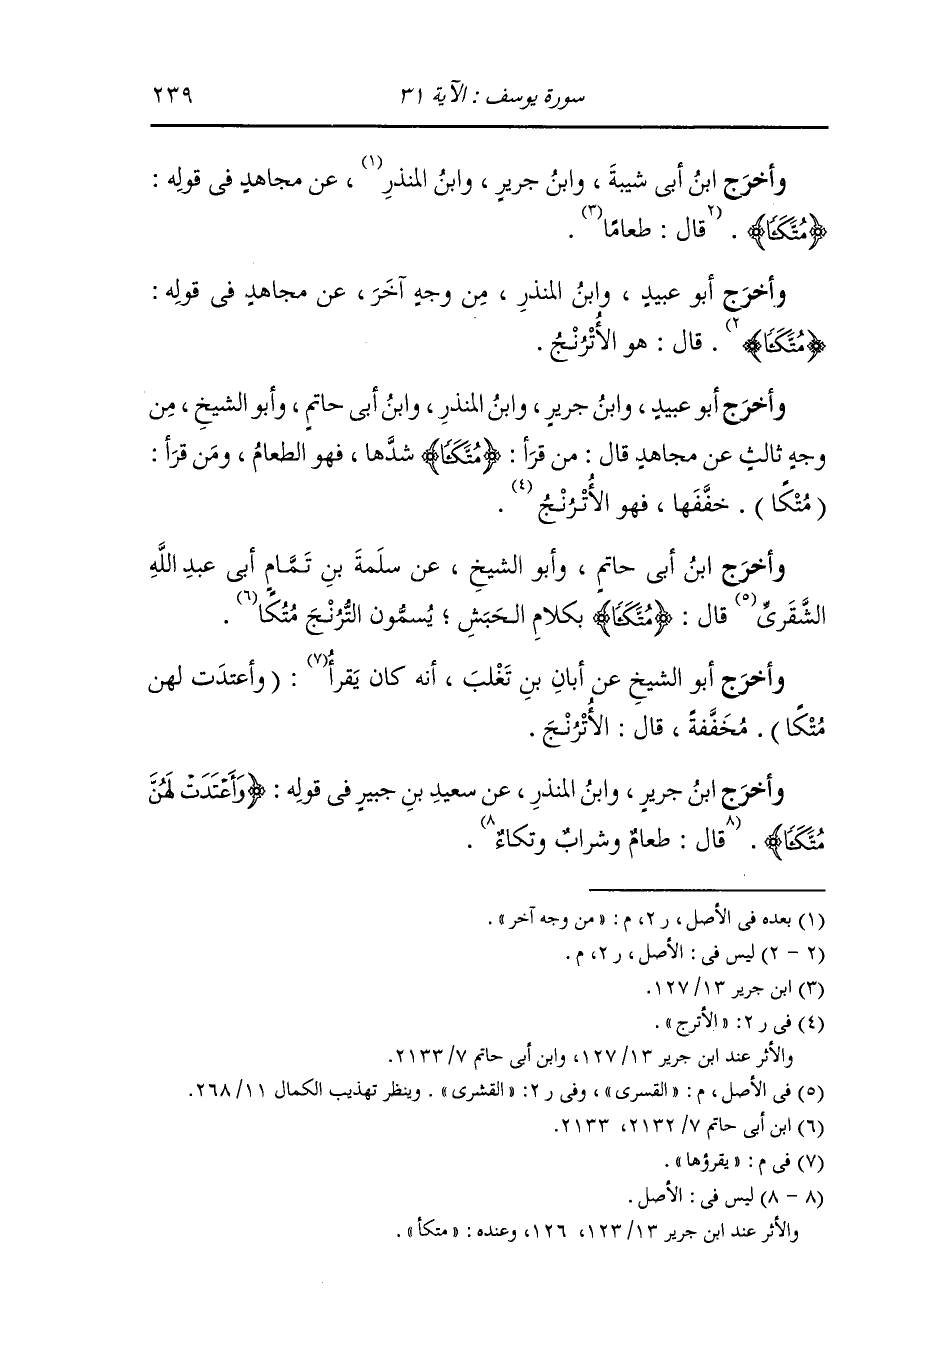 سورة يوسف : الآية ٣١ ٢٣٩
وأخرَج ابنُ أبى شيبةَ ، وابنُ جريرٍ ، وابنُ المنذرِ(١) ، عن مجاهدٍ فى قولِه :
﴿مُتَّكَـًٔا﴾ . (٢قال : طعامًا(٣) .
وأخرَج أبو عبيدٍ ، وابنُ المنذرِ ، مِن وجهٍ آخَرَ ، عن مجاهدٍ فى قولِه :
﴿مُتَّكَـًٔا﴾٢) . قال : هو الأُتْرُنْجُ .
وأخرَج أبو عبيدٍ ، وابنُ جريرٍ ، وابنُ المنذرِ ، وابنُ أبى حاتمٍ ، وأبو الشيخِ ، مِن
وجهٍ ثالثٍ عن مجاهدٍ قال : من قرَأ : ﴿مُتَّكَـًٔا﴾ شدَّها ، فهو الطعامُ ، ومَن قرَأ :
( مُتْكًا ) . خفَّفَها ، فهو الأُتْرُنْجُ(٤) .
وأخرَج ابنُ أبى حاتمٍ ، وأبو الشيخِ ، عن سلَمةَ بنِ تَمَّامٍ أبى عبدِ اللَّهِ
الشَّقَرىِّ(٥) قال : ﴿مُتَّكَـًٔا﴾ بكلامِ الحَبَشِ ؛ يُسمُّون التُّرُنْجَ مُتْكًا(٦) .
وأخرَج أبو الشيخِ عن أبانِ بنِ تَغْلبَ ، أنه كان يَقرأُ(٧) : ( وأعتدَت لهن
مُتْكًا ) . مُخَفَّفةً ، قال : الأُتْرُنْجَ .
وأخرَج ابنُ جريرٍ ، وابنُ المنذرِ ، عن سعيدِ بنِ جبيرٍ فى قولِه : ﴿وَأَعْتَدَتْ لَهُنَّ
مُتَّكَـًٔا﴾ . (٨قال : طعامٌ وشرابٌ وتكاءٌ٨) .
(١) بعده فى الأصل ، ر ٢، م : « من وجه آخر » .
(٢ - ٢) ليس فى : الأصل ، ر ٢، م .
(٣) ابن جرير ١٣/ ١٢٧.
(٤) فى ر ٢: « الأترج » .
والأثر عند ابن جرير ١٣/ ١٢٧، وابن أبى حاتم ٧/ ٢١٣٣.
(٥) فى الأصل ، م : « القسرى » ، وفى ر ٢: « القشرى » . وينظر تهذيب الكمال ١١/ ٢٦٨.
(٦) ابن أبى حاتم ٧/ ٢١٣٢، ٢١٣٣.
(٧) فى م : « يقرؤها » .
(٨ - ٨) ليس فى : الأصل .
والأثر عند ابن جرير ١٣/ ١٢٣، ١٢٦، وعنده : « متكأ » .